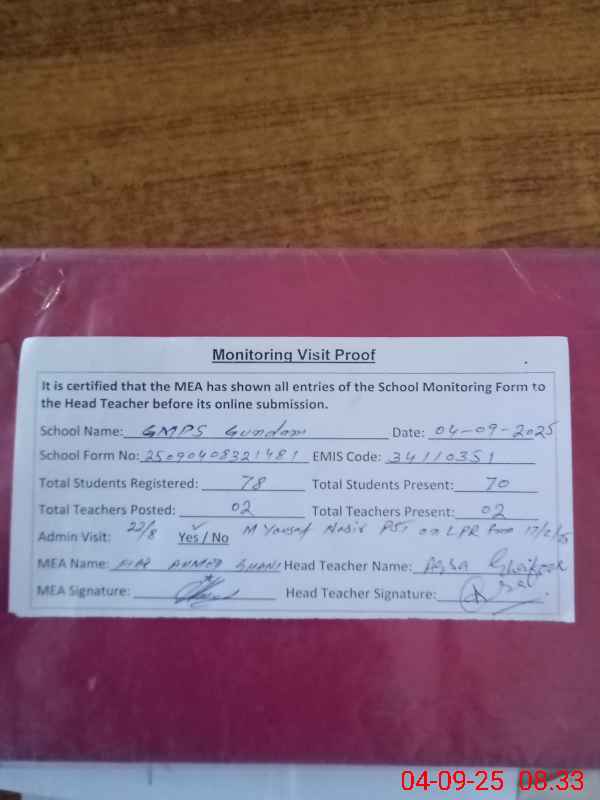 Monitoring Visit Proof
It is certified that the MEA has shown all entries of the School Monitoring Form to
the Head Teacher before its online submission.
School Name: GMPS Gundam Date: 04-09-2025
School Form No: 25090408321481 EMIS Code: 34110351
Total Students Registered: 78 Total Students Present: 70
Total Teachers Posted: 02 Total Teachers Present: 02
Admin Visit: 22/8 Yes / No M Yousaf Nasir PST on LPR from
MEA Name: AHMED GHANI Head Teacher Name: Aqsa
MEA Signature: Head Teacher Signature:
04-09-25 08:33